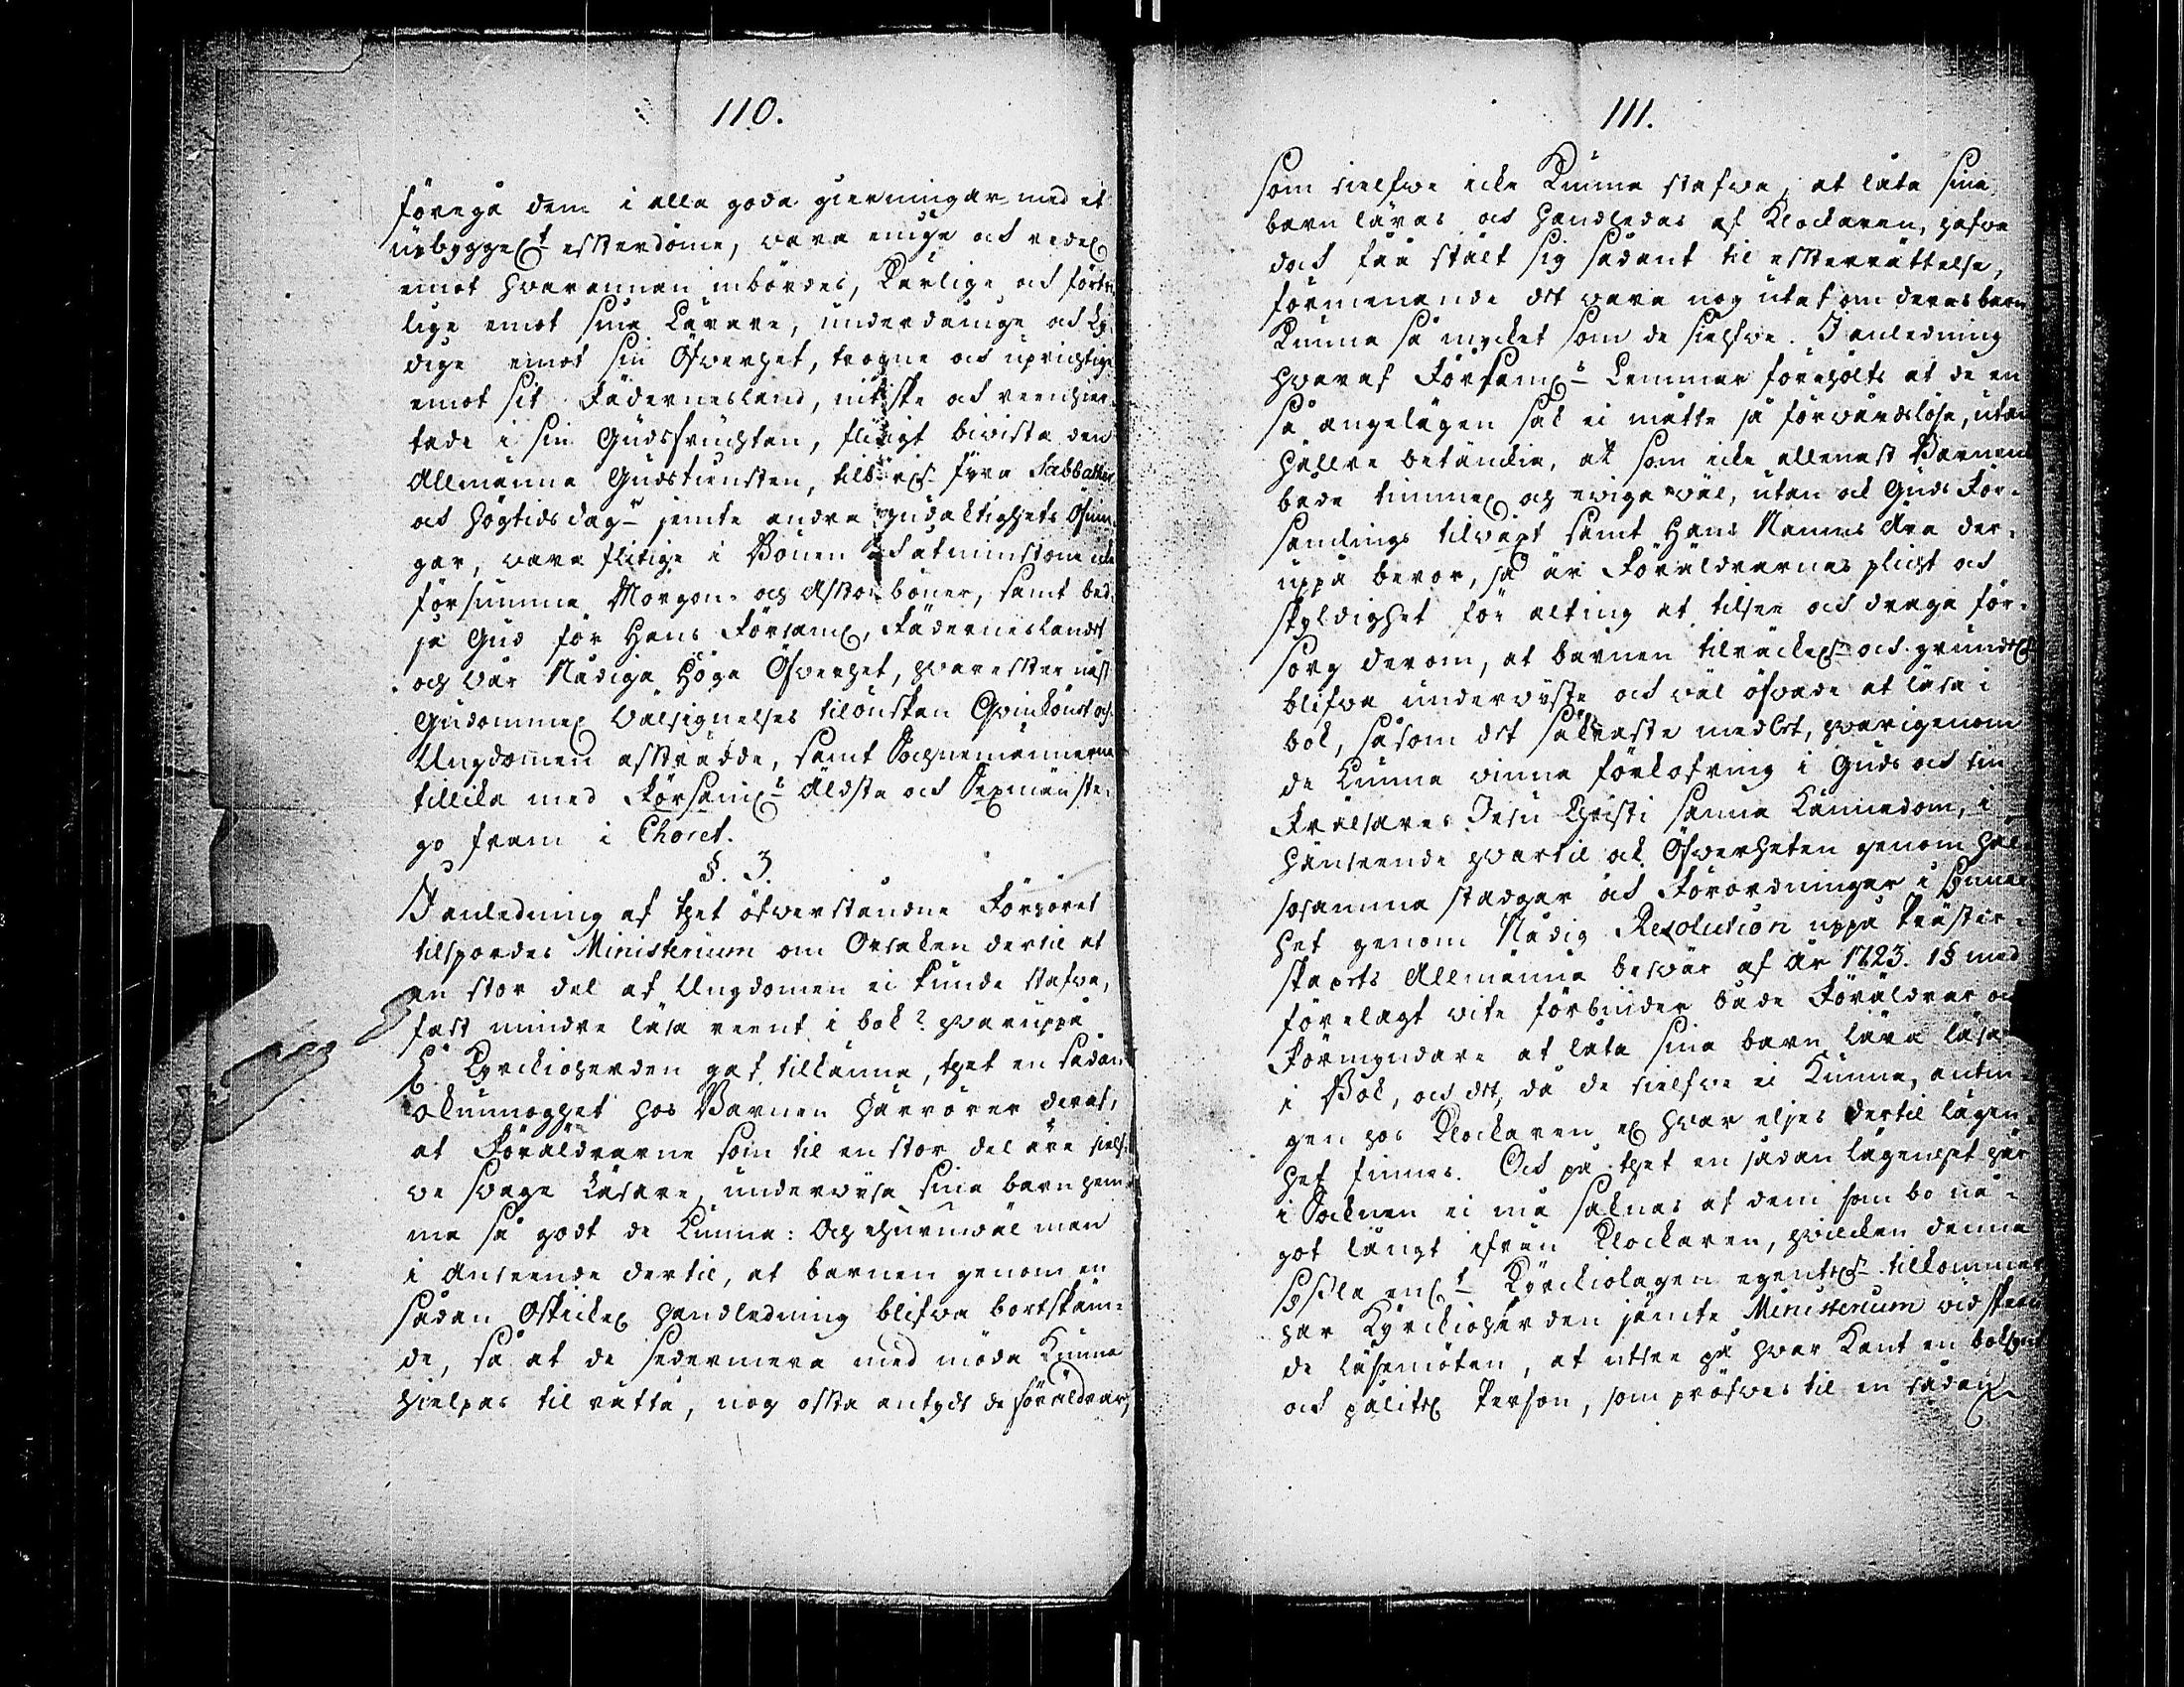 110.
föregå dem i alla goda gierningar med et
upbyggel:t efterdöme, vara enige och redel:
emot hvarannan inbördes, Kärlige och förtro-
lige emot sina Lärare, underdånige och Ly-
dige emot sin Öfverhet, trogne och uprichtige
emot sit Fädernesland, nitiske och reenhier-
tade i sin Gudsfruchtan, flitigt bivista den
Allmänna Gudstiensten, fira Sabbather
och högtidsdag:r jemte andra gudaktighets Öfnin-
gar, vara flitige i Bönen och åtminstone icke
försumma Morgon- och Aftonböner, samt bed-
ja Gud för Hans Församl:, Fäderneslandet
och vår Nådiga Höga Öfverhet, hvarefter näst
Gudommel: Välsignelses tilönskan Qvinkönet och
Ungdomen afträdde, samt Sochnemännerna
tillika med Församl:s Äldsta och Sexmän ste-
go fram i Choret.
§. 3.
I anledning af thet öfverståndne Förhöret
tilspordes Ministerium om Orsaken dertil at
en stor del af Ungdomen ei kunde stafva,
fast mindre läsa reent i bok? hvaruppå
H:r Kyrckioherden gaf tilkänna, thet en sådan
okunnoghet hos Barnen härrörer deraf,
at Föräldrarne som til en stor del äro sielf-
ve svage Läsare, undervisa sina barn hem-
ma så godt de kunna: Och ehuruväl man
i Anseende dertil, at barnen genom en
sådan Oskickel: handledning blifva bortskäm-
de, så at de sedermera med möda kunna
hielpas til rätta, nog ofta antydt de föräldrar,
111.
som sielfve icke kunna stafva, at låta sina
barn läras och handledas af Klockaren, hafva
dock fåa stält sig sådant til efterrättelse,
förmenande det vara nog utat om deras barn
kunna så mycket som de sielfve. I anledning
hvaraf Församl:s Lemmar föreholts at de en
så angelägen sak ei måtte så förvårdslösa, utan
hällre betänckia, at som icke allenast Barnens
både timmel: och eviga väl, utan ock Guds För-
samlings tilvext samt Hans Namns Ära der-
uppå beror, så är Föräldrarnas plicht och
skyldighet för alting at tilsee och draga för-
sorg derom, at barnen tilräckel:n och grundel:n
blifva underviste och väl öfvade at läsa i
bok, såsom det säkraste medlet, hvarigenom
de kunna vinna förkofring i Guds och sin
Frälsares Jesu Christi sanna Kännedom, i
hänseende hvartil ock Öfverheten genom häl-
sosamma stadgar och Förordningar i synner-
het genom Nådig Resolution uppå Präster-
skapets Allmänna besvär af År 1723. 1§ med
förelagt vite förbinder både Föräldrar och
Förmyndare at låta sina barn lära läsa
i Bok, och det, då de sielfve ei kunna, antin-
gen hos Klockaren el: hvar eljes dertil lägen-
het finnes. Och på thet en sådan lägenhet här
i Socknen ei må saknas af dem som bo nå-
got långt ifrån Klockaren, hvilcken denna
syssla enl:t Kyrckiolagen egentel:n tilkommer
har Kyrckioherden jämte Ministerium vid skeen-
de läsemöten, at utsee på hvar Kant en
och pålitel: Person, som pröfves til en sådan